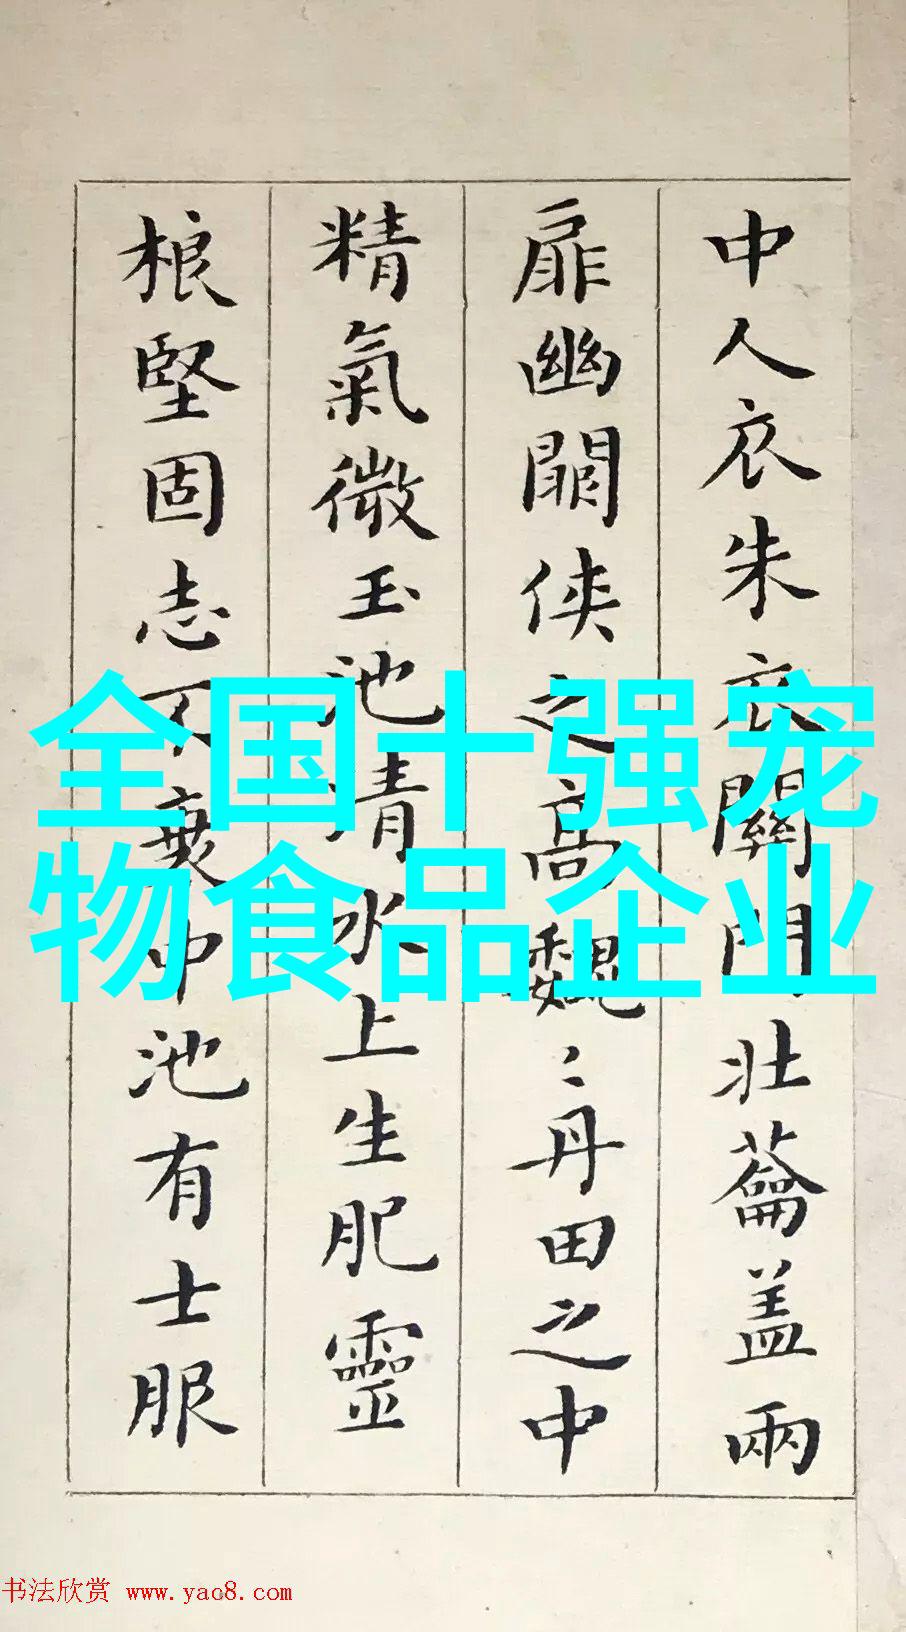 中人衣朱衣關門壯蘥盖兩
扉幽闗侠之高魏〻丹田之中
精氣微玉池清水上生肥靈
根堅固志不衰中池有士服
全国十强宠
物食品企业
书法欣赏 www.yac8.com